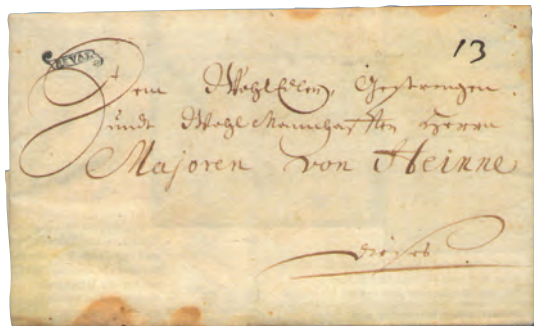 REVAL
13
Dem WohlEdlen, Gestrengen
undt WohlMannhafften Herrn
Majoren von Heinne
dieses